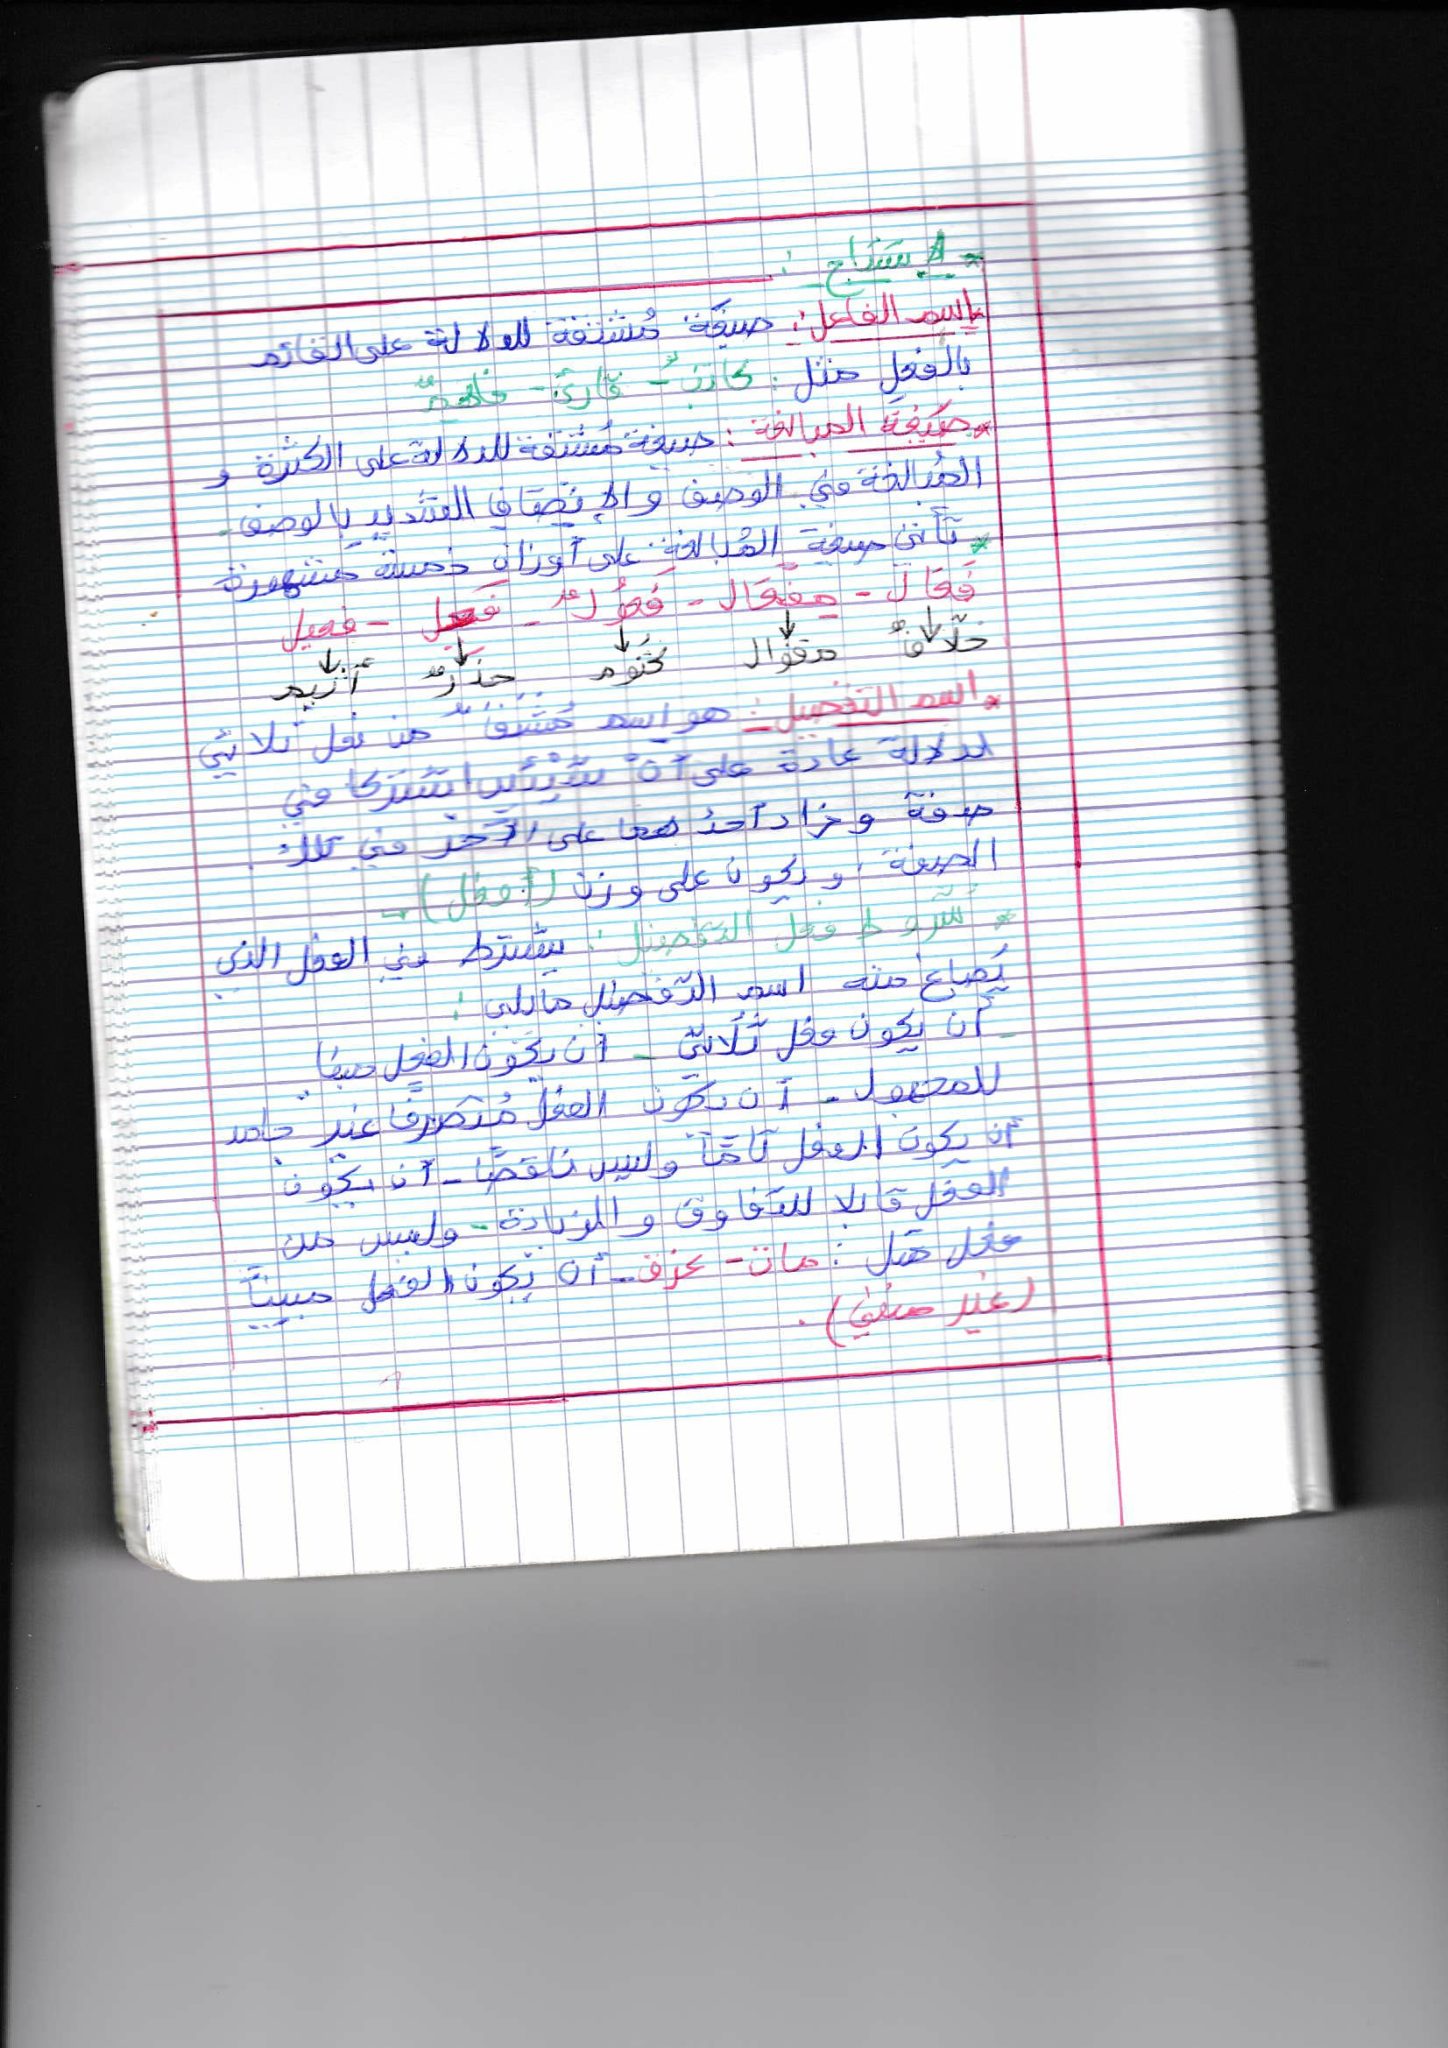 * الاستنتاج :
* اسم الفاعل : صيغة مُشتقة للدلالة على القائم
بالفعل مثل : كاتبٌ - قارئ - فاهمٌ
* صيغة المبالغة : صيغة مُشتقة للدلالة على الكثرة و
المُبالغة في الوصف والاتصاف الشديد بالوصف .
* تأتي صيغة المُبالغة على أوزان خمسة مشهورة
فَعَّال - مِفْعَال - فَعُول - فَعِل - فعيل
خلّافٌ مقوال كتوم حذرٌ أثيم
* اسم التفضيل : هو اسم مُشتقٌ من فعل ثلاثي
لدلالة عادة على أنّ شيئين اشتركا في
صفة و زاد أحدهما على الآخر في تلك
الصفة ، و يكون على وزن (أفعل)
* شروط فعل التفضيل : يشترط في الفعل الذي
يُصاغ منه اسم التّفضيل مايلي :
- أن يكون فعل ثلاثيّ - أن يكون الفعل مبنيا
للمجهول - أن يكون الفعل مُتصرفًا غير جامد
أن يكون الفعل تامًّا وليس ناقصًا - أن يكون
الفعل قابلا للتفاوت والزيادة - وليس من
فعل مثل : مات - غرق - أن يكون الفعل مبنيًا
(غير منفي) .